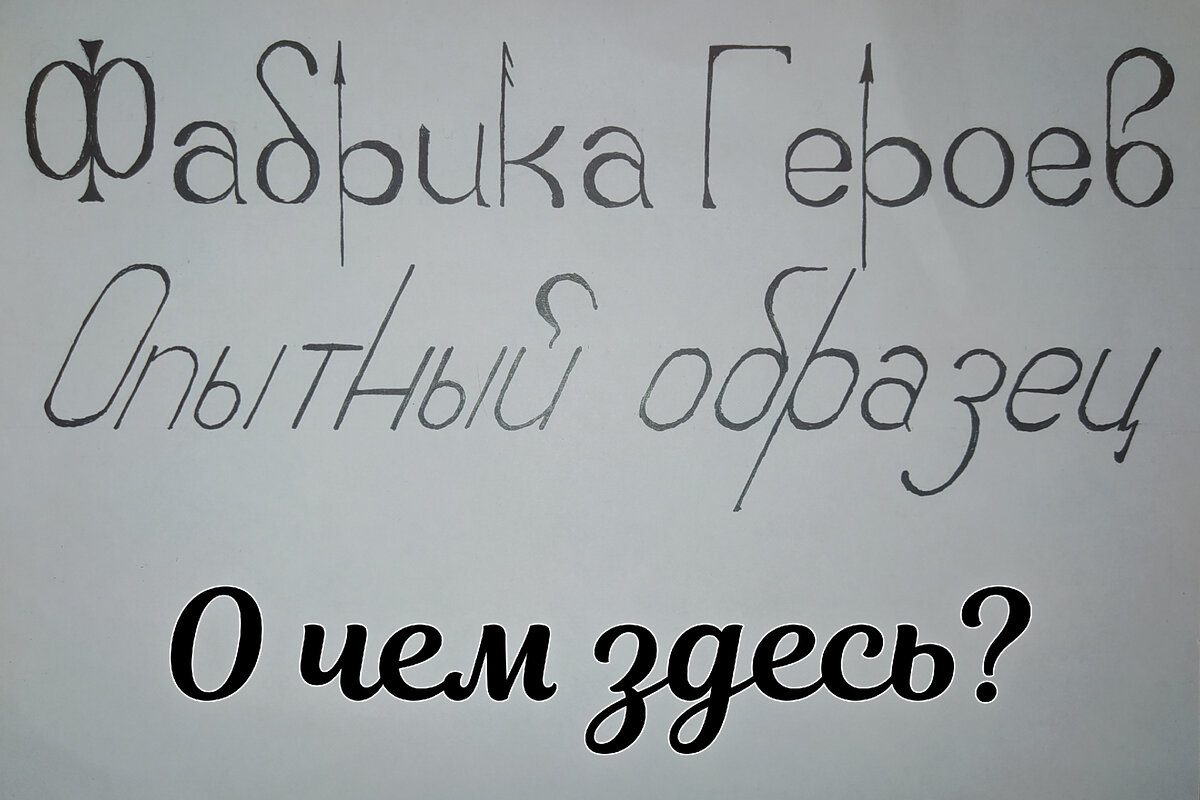 Фабрика Героев
Опытный образец
О чем здесь?